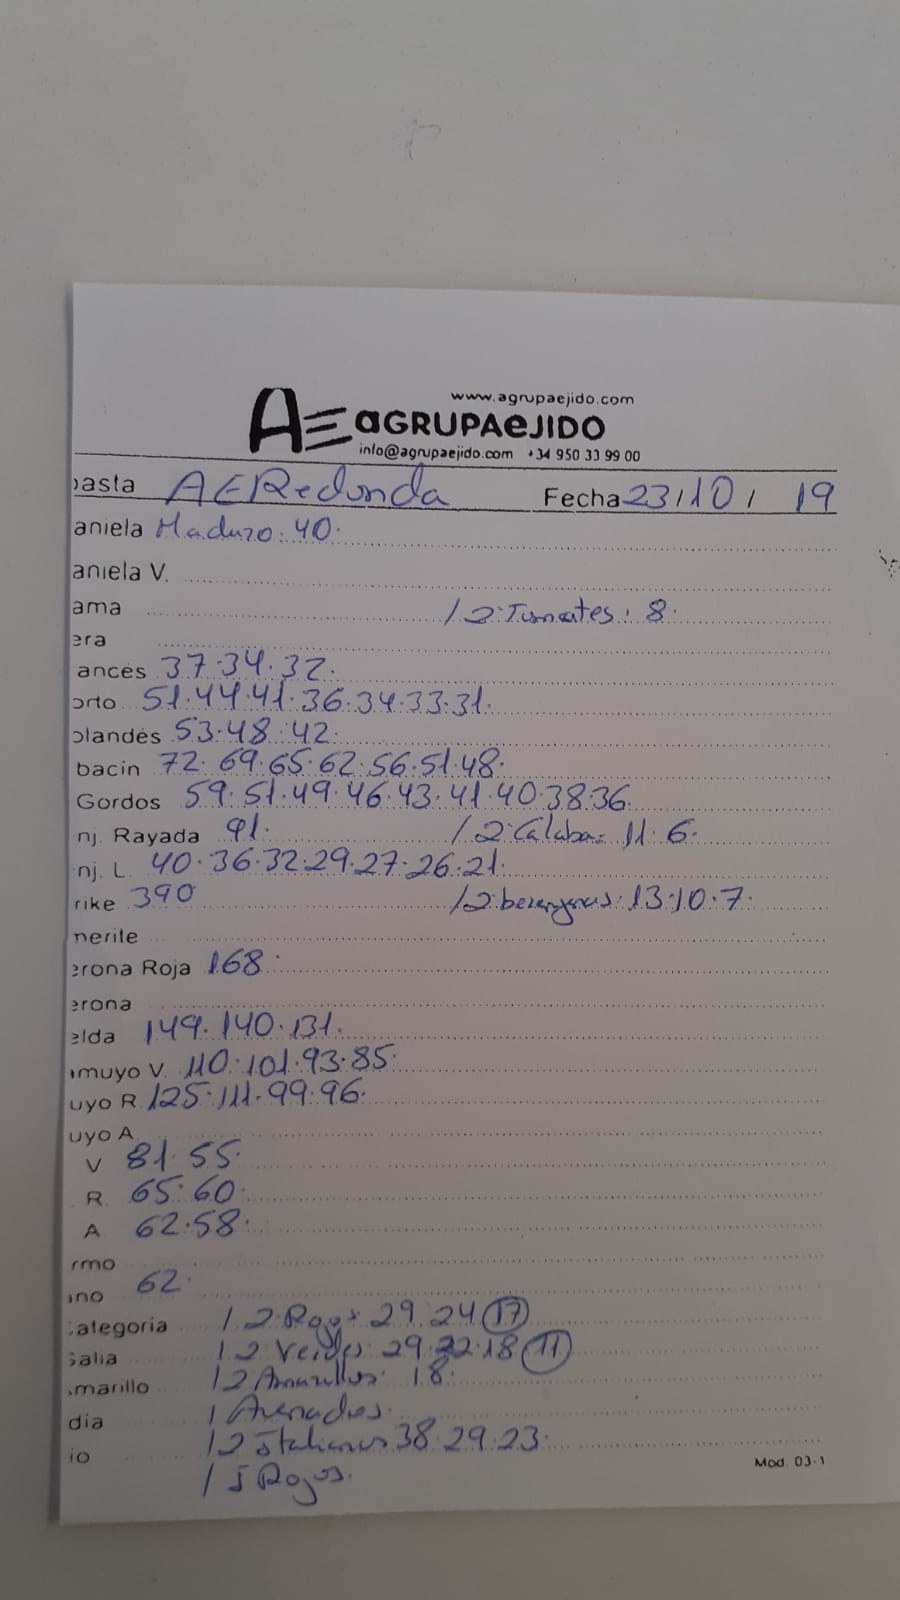 www.agrupaejido.com
AE aGRUPAeJIDO
info@agrupaejido.com +34 950 33 99 00
basta AERedonda Fecha 23/10/ 19
aniela Maduro: 40.
aniela V.
ama /2 Tomates: 8.
era
ancés 37.34.32.
orto 51.44.41.36.34.33.31.
olandés 53.48.42.
bacin 72.69.65.62.56.51.48.
Gordos 59.51.49.46.43.41.40.38.36.
nj. Rayada 91. /2 Calaba= 11.6.
nj. L. 40.36.32.29.27.26.21.
rike 390 /2 berenjenas: 13.10.7.
nerite
erona Roja 168.
erona
elda 149.140.131.
muyo V. 110.101.93.85.
uyo R 125.111.99.96.
uyo A
V 81.55.
R 65.60.
A 62.58.
rmo
ino 62.
ategoria /2 Rojos 29.24 17
Salia /2 Verdes 29.22.18 11
marillo /2 Amarillos: 18.
dia /
io /2 Italianos 38.29.23.
/ 5 Rojos.
Mod. 03-1